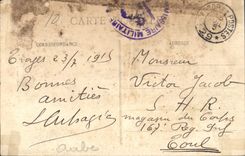 CARTE
CORRESPONDANCE
MILITAIRE
Troyes 23/7 1915
Bonnes
amitiés
Monsieur
Victor Jacob
S. H. R.
magasin du Corps
167e Reg Inf
Toul
Aube